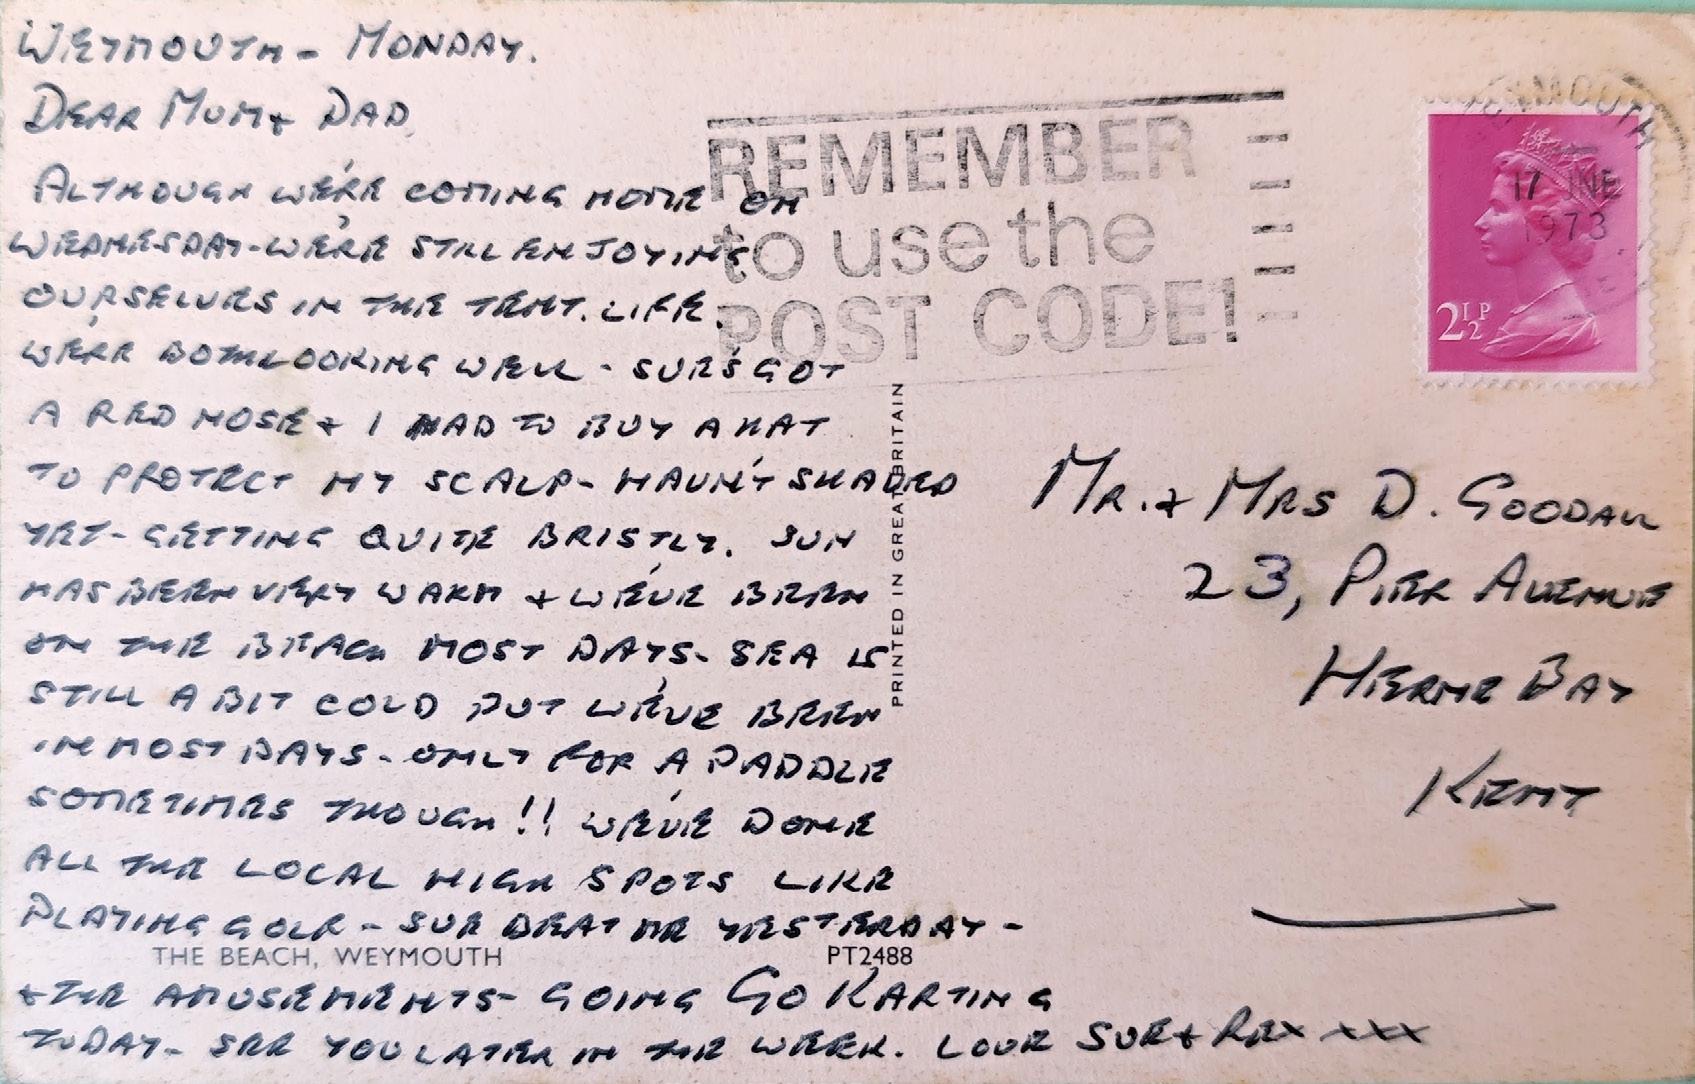 WEYMOUTH - MONDAY.
DEAR MUM & DAD,
ALTHOUGH WE'RE COMING HOME ON
WEDNESDAY - WE'RE STILL ENJOYING
OURSELVES IN THE TENT. LIFE.
WE'RE BOTH LOOKING WELL - SUE'S GOT
A RED NOSE & I HAD TO BUY A HAT
TO PROTECT MY SCALP - HAVN'T SHAVED
YET - GETTING QUITE BRISTLY. SUN
HAS BEEN VERY WARM & WE'VE BEEN
ON THE BEACH MOST DAYS - SEA IS
STILL A BIT COLD BUT WE'VE BEEN
IN MOST DAYS - ONLY FOR A PADDLE
SOMETIMES THOUGH!! WE'VE DONE
ALL THE LOCAL HIGH SPOTS LIKE
PLAYING GOLF - SUE BEAT ME YESTERDAY -
THE BEACH, WEYMOUTH PT2488
& THE AMUSEMENTS - GOING GO KARTING
TODAY - SEE YOU LATER IN THE WEEK. LOVE SUE & REX XXX
PRINTED IN GREAT BRITAIN
REMEMBER
to use the
POST CODE!
WEYMOUTH
17 JNE
1973
2½P
MR. & MRS D. GOODALL
23, PIER AVENUE
HERNE BAY
KENT